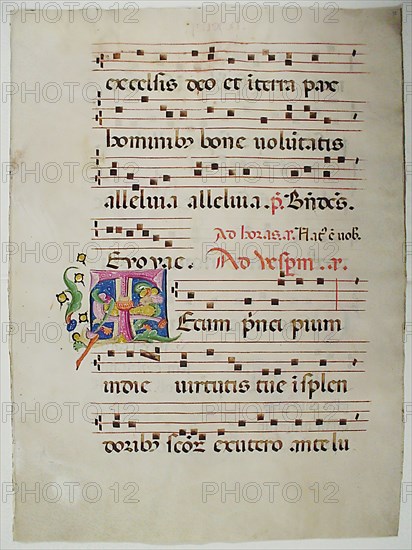 excelsis deo et īterra pax
hominibꝫ bone volūtatis
alleluia alleluia. p̄s. Bn̄dcs̄.
Ad horas. a. Nat᷒ ē vob.
Evovae. Ad Vesp̄m. a.
Tecum p̄nci pium
indie virtutis tue īsplen
doribꝫ scōꝝ exutero antelu
PHOTO 12